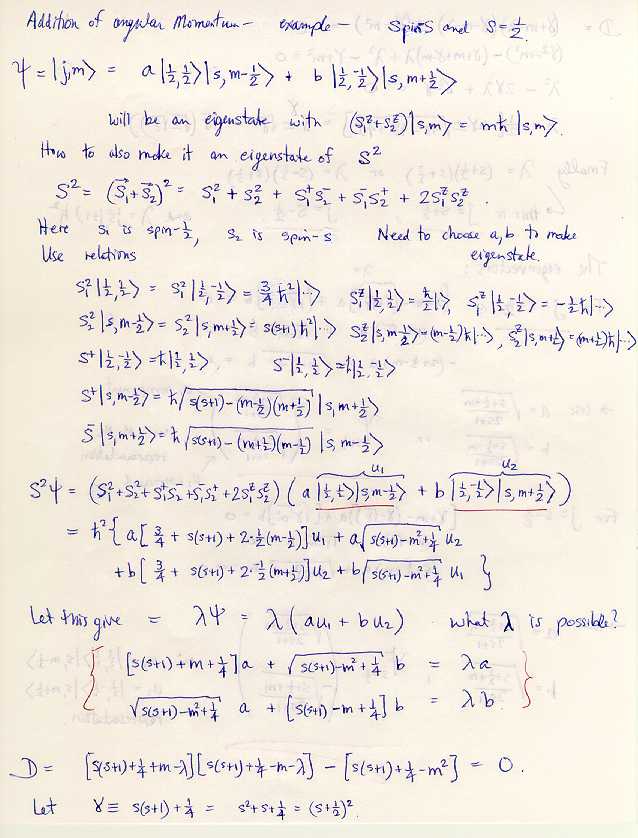 Addition of angular Momentum – example – Spin S and S = 1/2.
Ψ = |j,m⟩ = a |1/2, 1/2⟩ |s, m-1/2⟩ + b |1/2, -1/2⟩ |s, m+1/2⟩
will be an eigenstate with (S₁ᶻ+S₂ᶻ)|s,m⟩ = mħ |s,m⟩.
How to also make it an eigenstate of S²
S² = (S⃗₁+S⃗₂)² = S₁² + S₂² + S₁⁺S₂⁻ + S₁⁻S₂⁺ + 2S₁ᶻS₂ᶻ .
Here s₁ is spin-1/2, s₂ is spin-s Need to choose a, b to make
Use relations eigenstate.
S₁²|1/2, 1/2⟩ = S₁²|1/2, -1/2⟩ = 3/4 ħ²|··⟩ S₁ᶻ|1/2, 1/2⟩ = ħ/2|⟩, S₁ᶻ|1/2, -1/2⟩ = -1/2 ħ|··⟩
S₂²|s, m-1/2⟩ = S₂²|s, m+1/2⟩ = s(s+1)ħ²|··⟩ S₂ᶻ|s, m-1/2⟩ = (m-1/2)ħ|··⟩, S₂ᶻ|s, m+1/2⟩ = (m+1/2)ħ|··⟩
S⁺|1/2, -1/2⟩ = ħ|1/2, 1/2⟩ S⁻|1/2, 1/2⟩ = ħ|1/2, -1/2⟩
S⁺|s, m-1/2⟩ = ħ √(s(s+1) - (m-1/2)(m+1/2)) |s, m+1/2⟩
S⁻|s, m+1/2⟩ = ħ √(s(s+1) - (m+1/2)(m-1/2)) |s, m-1/2⟩
u₁ u₂
S²Ψ = (S₁²+S₂²+S₁⁺S₂⁻+S₁⁻S₂⁺+2S₁ᶻS₂ᶻ) (a |1/2, 1/2⟩|s, m-1/2⟩ + b |1/2, -1/2⟩|s, m+1/2⟩)
= ħ² { a[3/4 + s(s+1) + 2·1/2(m-1/2)] u₁ + a√(s(s+1)-m²+1/4) u₂
+ b[3/4 + s(s+1) + 2·-1/2(m+1/2)] u₂ + b√(s(s+1)-m²+1/4) u₁ }
Let this give = λΨ = λ(au₁ + bu₂) what λ is possible?
{ [s(s+1) + m + 1/4] a + √(s(s+1)-m²+1/4) b = λa }
√(s(s+1)-m²+1/4) a + [s(s+1) - m + 1/4] b = λb.
D = [s(s+1)+1/4+m-λ][s(s+1)+1/4-m-λ] - [s(s+1)+1/4-m²] = 0.
Let γ ≡ s(s+1)+1/4 = s²+s+1/4 = (s+1/2)².